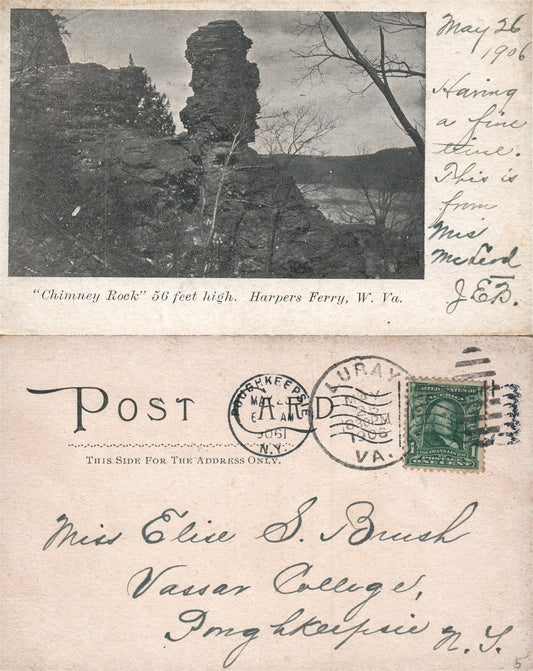 May 26
1906
Having
a fine
time.
This is
from
Miss
McLeod
J.E.B.
"Chimney Rock" 56 feet high. Harpers Ferry, W. Va.
POST CARD
THIS SIDE FOR THE ADDRESS ONLY.
POUGHKEEPSIE
N.Y.
LURAY
1906
VA.
1
ONE CENT
Miss Elise S. Brush
Vassar College,
Poughkeepsie N. Y.
5